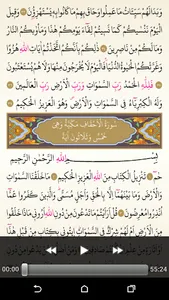 وَبَدَا لَهُمْ سَيِّئَاتُ مَا عَمِلُوا وَحَاقَ بِهِمْ مَا كَانُوا بِهِ يَسْتَهْزِؤُنَ وَقِيلَ
الْيَوْمَ نَنْسٰيكُمْ كَمَا نَسِيتُمْ لِقَاءَ يَوْمِكُمْ هٰذَا وَمَأْوٰيكُمُ النَّارُ
وَمَا لَكُمْ مِنْ نَاصِرِينَ ذٰلِكُمْ بِاَنَّكُمُ اتَّخَذْتُمْ اٰيَاتِ اللّٰهِ
هُزُوًا وَغَرَّتْكُمُ الْحَيٰوةُ الدُّنْيَا فَالْيَوْمَ لَا يُخْرَجُونَ مِنْهَا وَلَا هُمْ يُسْتَعْتَبُونَ
فَلِلّٰهِ الْحَمْدُ رَبِّ السَّمٰوَاتِ وَرَبِّ الْاَرْضِ رَبِّ الْعَالَمِينَ
وَلَهُ الْكِبْرِيَاءُ فِي السَّمٰوَاتِ وَالْاَرْضِ وَهُوَ الْعَزِيزُ الْحَكِيمُ
سُورَةُ الْاَحْقَافِ مَكِّيَّةٌ وَهِيَ
خَمْسٌ وَثَلَاثُونَ اٰيَةً
بِسْمِ اللّٰهِ الرَّحْمٰنِ الرَّحِيمِ
حٰمٓ تَنْزِيلُ الْكِتَابِ مِنَ اللّٰهِ الْعَزِيزِ الْحَكِيمِ مَا خَلَقْنَا السَّمٰوَاتِ
وَالْاَرْضَ وَمَا بَيْنَهُمَا اِلَّا بِالْحَقِّ وَاَجَلٍ مُسَمًّى وَالَّذِينَ كَفَرُوا عَمَّا
اُنْذِرُوا مُعْرِضُونَ قُلْ اَرَاَيْتُمْ مَا تَدْعُونَ مِنْ دُونِ اللّٰهِ اَرُونِي
00:00
55:24